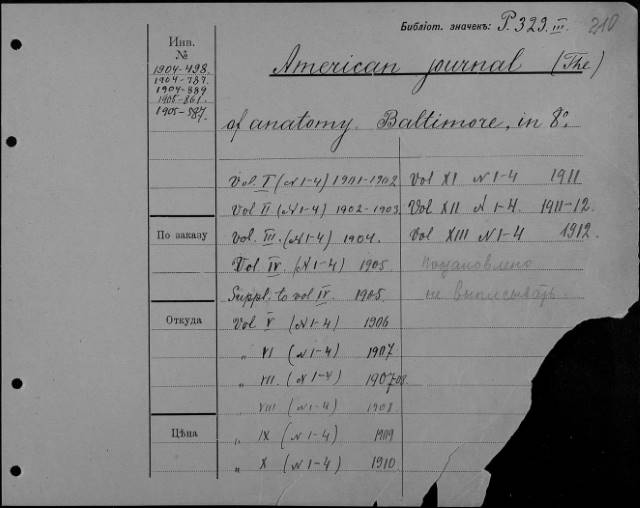 Библіот. значекъ: P. 323. III. 210
Инв.
№
1904-498.
1904-787.
1904-889
1905-861.
1905-887.
American journal (The)
of anatomy. Baltimore, in 8°.
Vol. I (N 1-4) 1901-1902
Vol II. (N 1-4) 1902-1903.
По заказу
Vol. III. (N 1-4) 1904.
Vol IV. (N 1-4) 1905
Suppl. to vol IV. 1905.
Откуда
Vol V (N 1-4) 1906
„ VI (N 1-4) 1907
„ VII. (N 1-4) 1907-08.
„ VIII (N 1-4) 1908
Цѣна
„ IX (N 1-4) 1909
„ X (N 1-4) 1910
Vol XI N 1-4 1911
Vol XII N 1-4. 1911-12.
Vol XIII N 1-4 1912.
не выписывать.